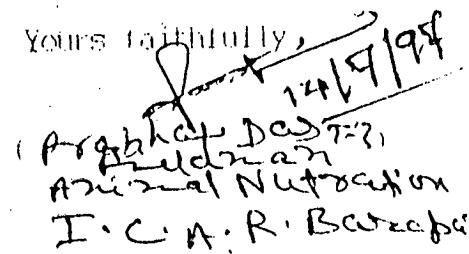 Yours faithfully,
14/9/98
(Prabhat Das
Animal Nutration
I.C.A.R. Barapa